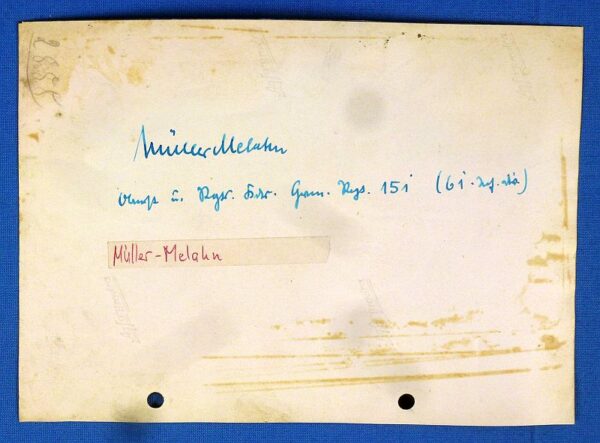 Müller Melahn
Oberst u. Rgts. Kdr. Gren. Regt. 151 (61. Inf. Div)
Müller-Melahn